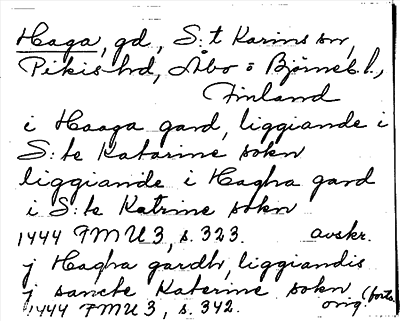 Haga, gd, S:t Karins sn,
Pikis hd, Åbo o Björneb. l.,
Finland
i Haaga gard, liggiande i
S:te Katarine sokn
liggiande i Hagha gard
i S:te Katrine sokn
1444 FMU 3, s. 323. avskr.
j Hagha gardh, liggiandis
j sancte Katerine sokn
1444 FMU 3, s. 342. orig. (forts.